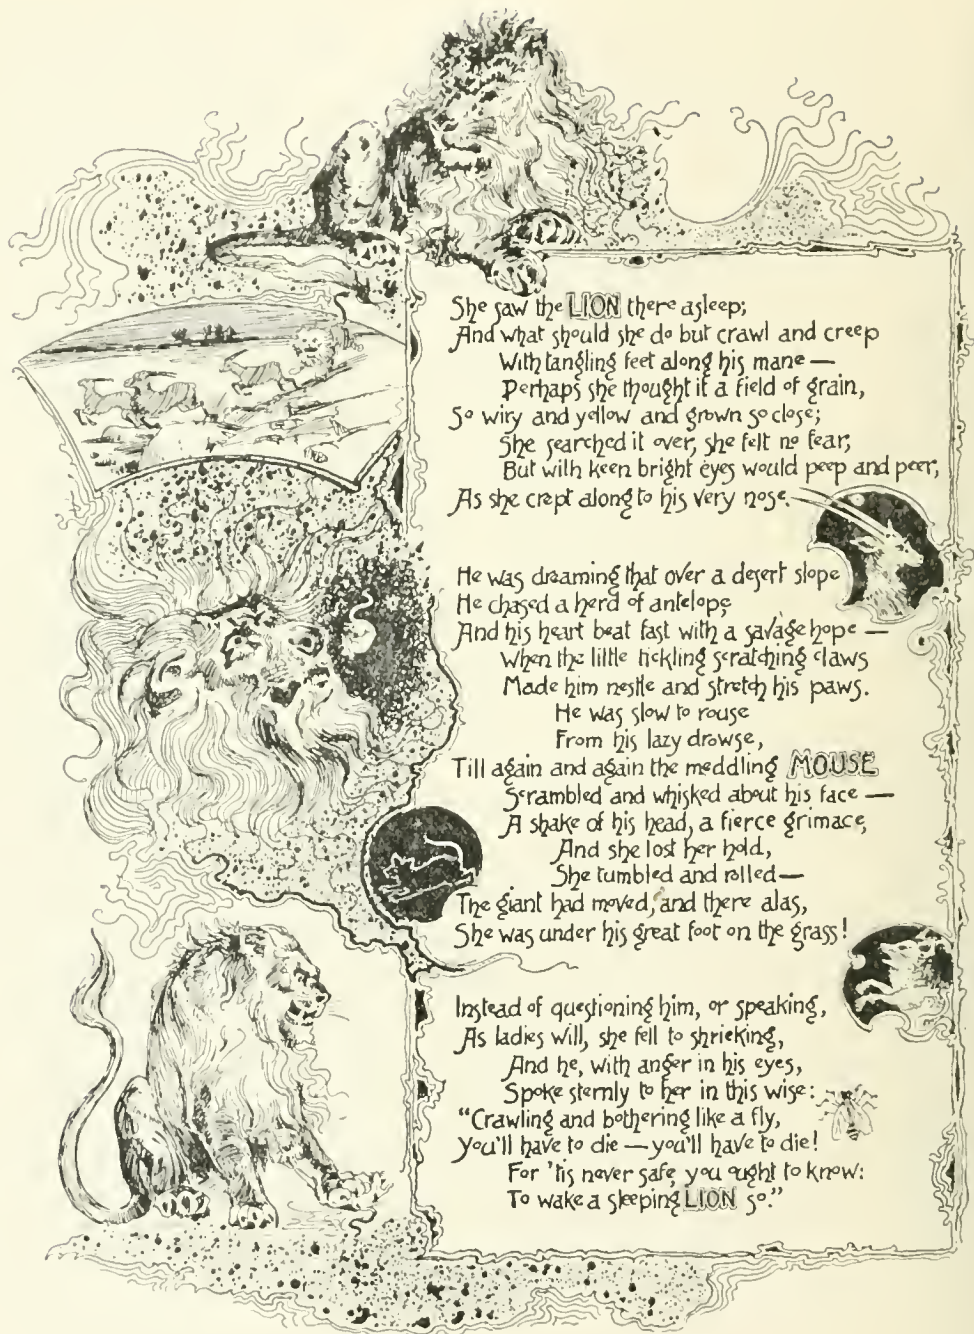 She saw the LION there asleep;
And what should she do but crawl and creep
With tangling feet along his mane —
Perhaps she thought it a field of grain,
So wiry and yellow and grown so close;
She searched it over, she felt no fear,
But with keen bright eyes would peep and peer,
As she crept along to his very nose.
He was dreaming that over a desert slope
He chased a herd of antelope,
And his heart beat fast with a savage hope —
When the little tickling scratching claws
Made him nestle and stretch his paws.
He was slow to rouse
From his lazy drowse,
Till again and again the meddling MOUSE
Scrambled and whisked about his face —
A shake of his head, a fierce grimace,
And she lost her hold,
She tumbled and rolled —
The giant had moved, and there alas,
She was under his great foot on the grass!
Instead of questioning him, or speaking,
As ladies will, she fell to shrieking,
And he, with anger in his eyes,
Spoke sternly to her in this wise:
"Crawling and bothering like a fly,
You'll have to die — you'll have to die!
For 'tis never safe you ought to know:
To wake a sleeping LION so."